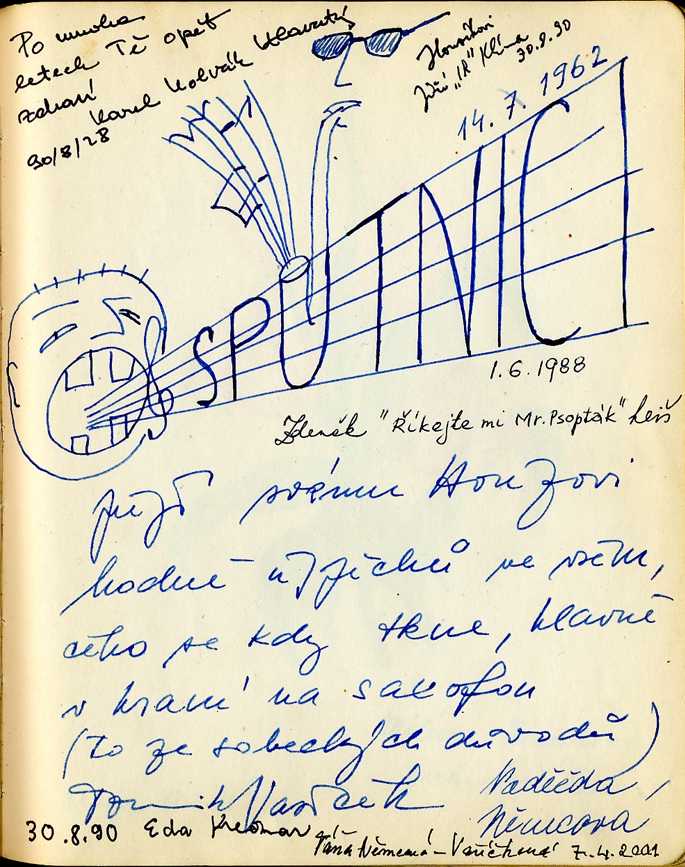 Po mnoha
letech Tě opět
zdraví
Karel Kolvák Hlavatý
90/8/28
Honzíkovi
Jiří "JR" Klíma
30.8.90
14.7.1962
SPUTNICI
1.6.1988
Zdeněk "Říkejte mi Mr. Psopták" Leiš
svému Honzovi
hodně úspěchů ve všem,
čeho se kdy tkne, hlavně
v hraní na saxofon
(to ze sobeckých důvodů)
Dominik Vašíček
Naděžda
Němcová
30.8.90 Eda
Táňa Němcová-Vašíčková 7.4.2001